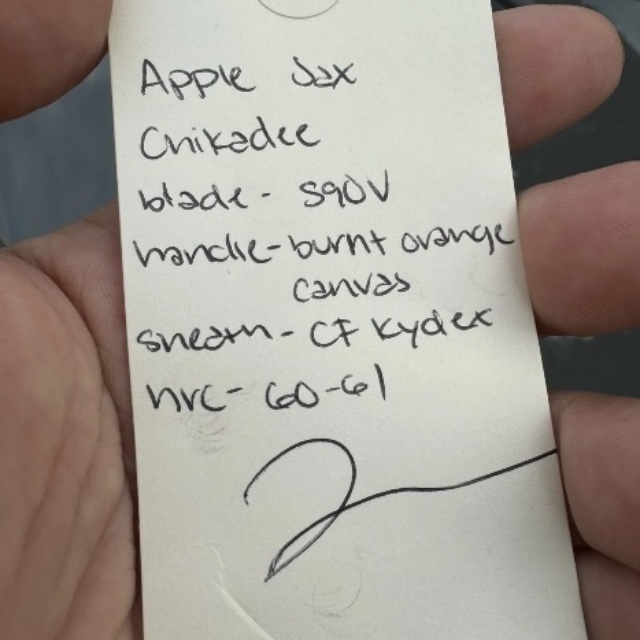 Apple Jax
Chikadee
blade - S90V
handle - burnt orange
canvas
sheath - CF Kydex
hrc - 60-61